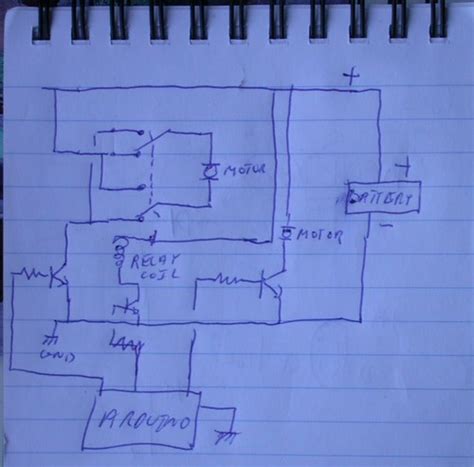 +
MOTOR
+
BATTERY
-
MOTOR
RELAY
COIL
GND
ARDUINO